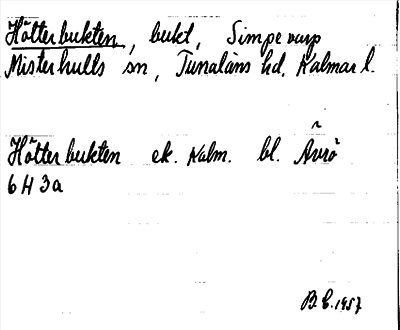 Hötterbukten, bukt, Simpevarp
Misterhults sn, Tunaläns hd, Kalmar l.
Hötterbukten ek. Kalm. bl. Ävrö
6 H 3a
B.E. 1957